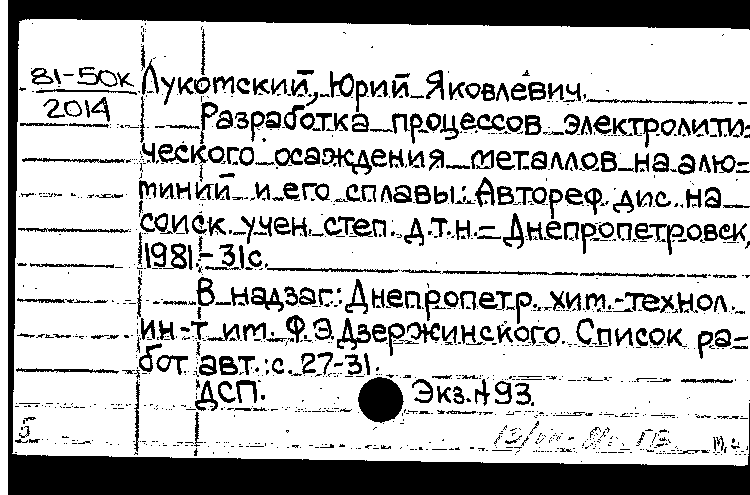 81-50к
2014
Лукотский, Юрий Яковлевич.
Разработка процессов электролити-
ческого осаждения металлов на алю-
миний и его сплавы: Автореф. дис. на
соиск. учен. степ. д.т.н. - Днепропетровск,
1981. - 31с.
В надзаг: Днепропетр. хим.-технол.
ин-т им. Ф.Э.Дзержинского. Список ра-
бот авт.: с. 27-31.
ДСП. Экз.№93.
5